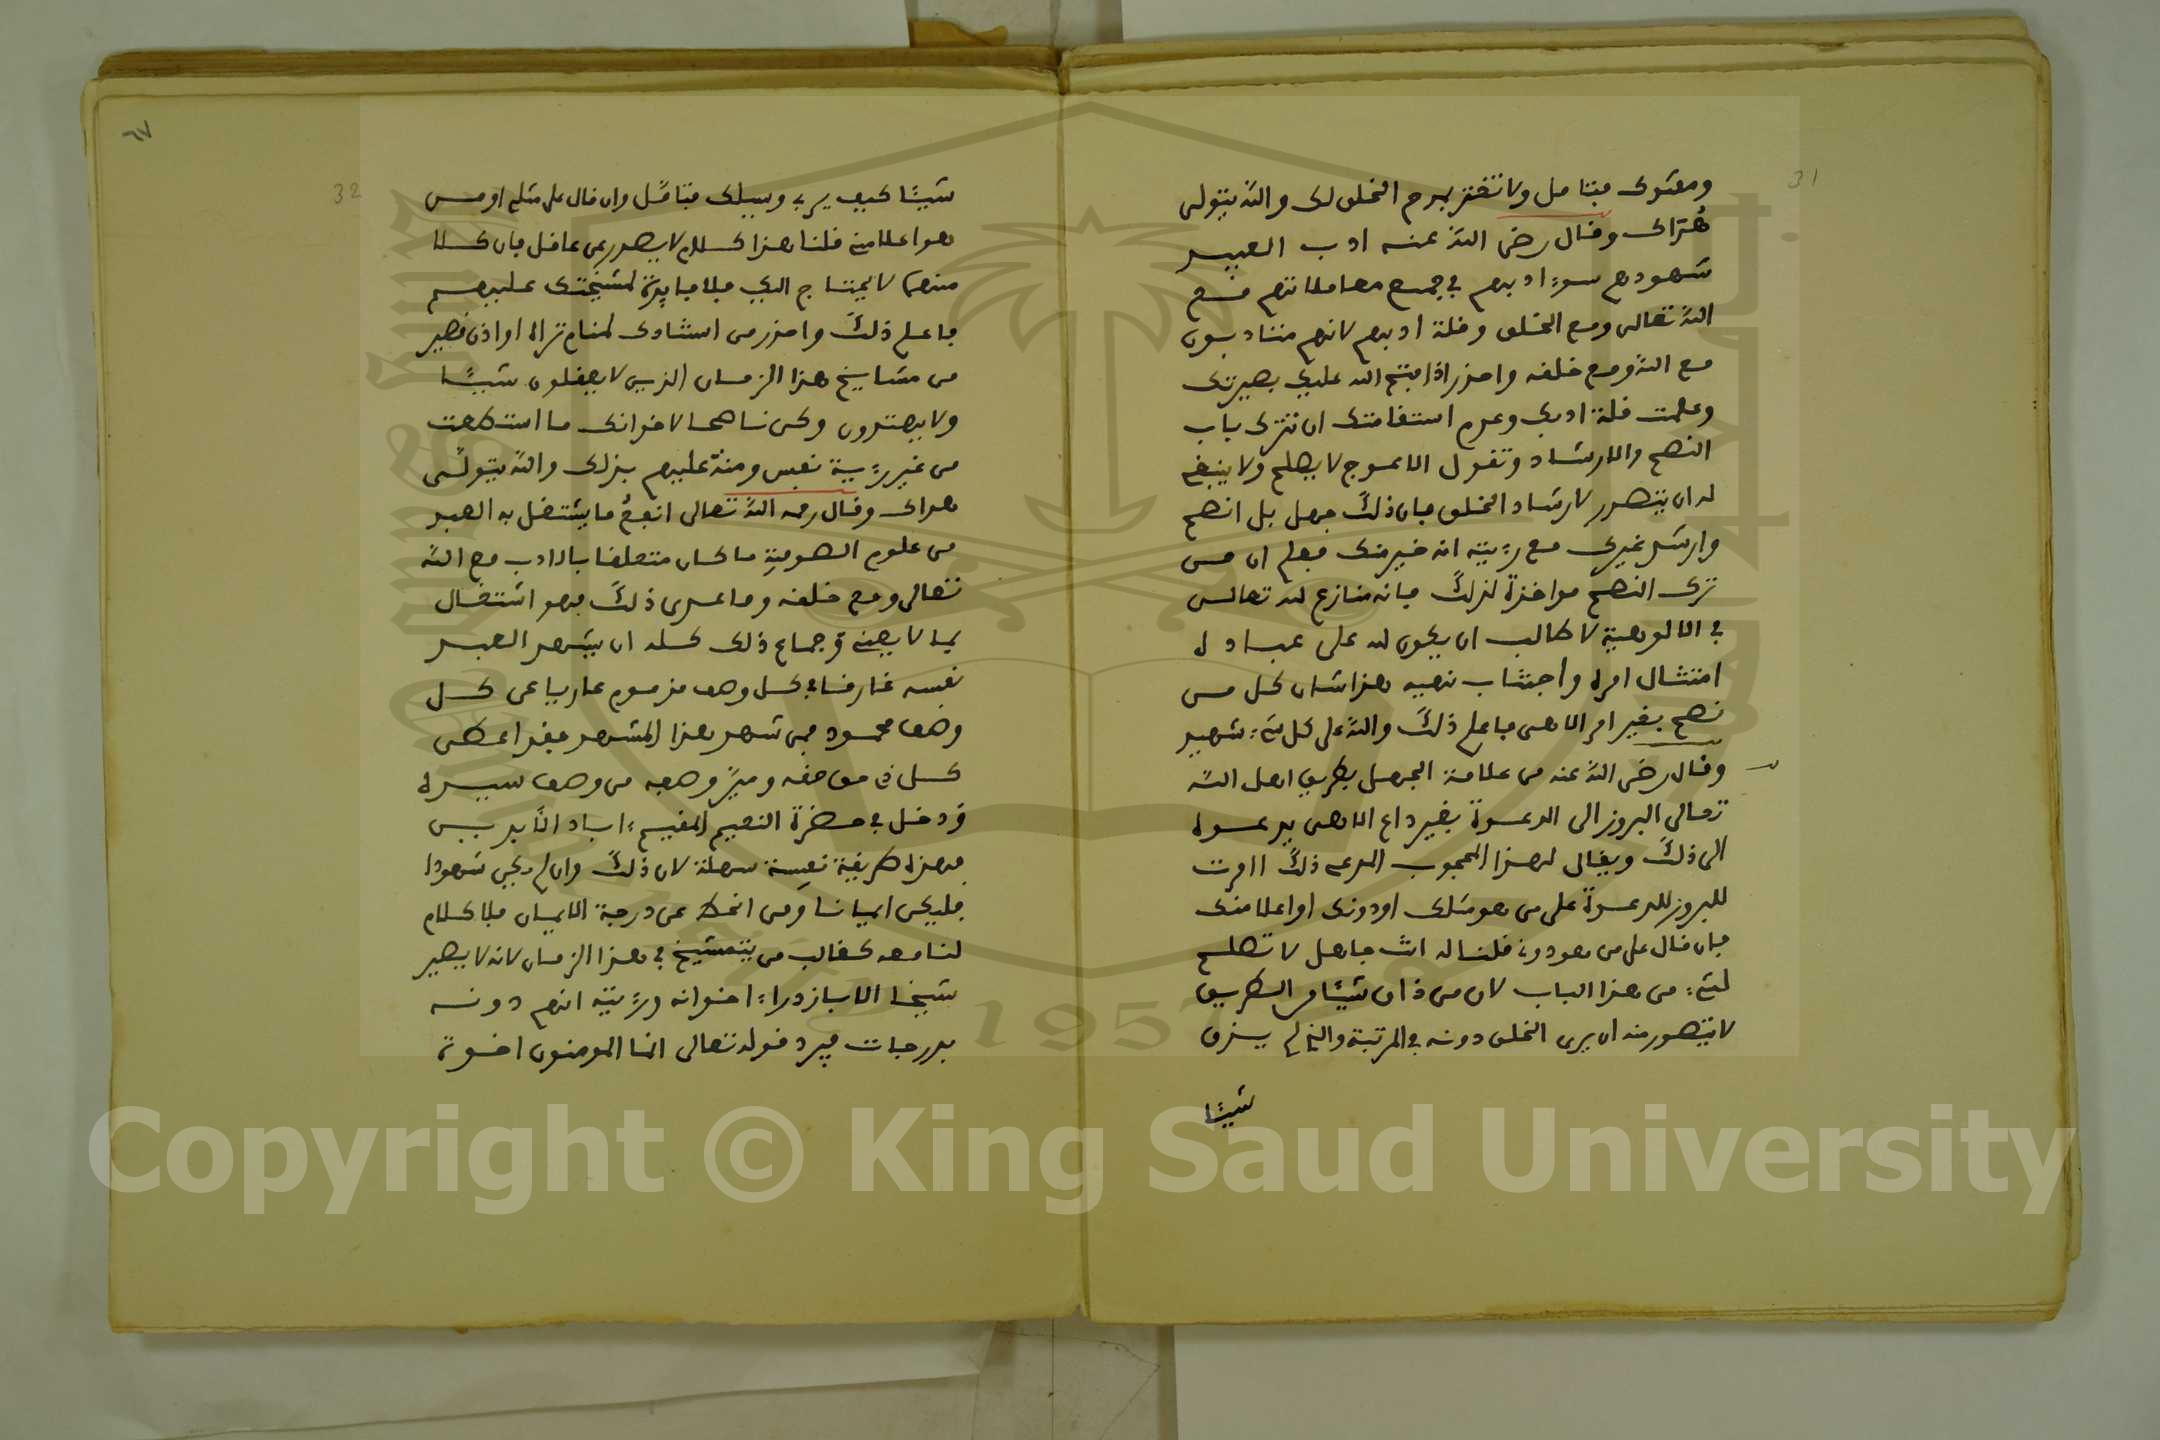 31
ومقتوك فتامل ولا تغتر بمدح الخلق لك والله يتولى
هُداك وقال رضي الله عنه ادب العبيد
شهودهم سوء ادبهم في جميع معاملاتهم مع
الله تعالى ومع الخلق وقلة ادبهم لانهم متادبون
مع الله ومع خلقه واحذر اذا فتح الله عليك بصيرتك
وعلمت قلة ادبك وعدم استقامتك ان تترك باب
النصح والارشاد وتقول الاعوج لا يصلح ولا ينبغي
له ان يتصدر لارشاد الخلق فان ذلك جهل بل انصح
وارشد غيرك مع رؤيته انه خير منك فعلم ان من
ترك النصح مواخذة لذلك فانه منازع لله تعالى
في الالوهية لا طالب ان يكون لله على عباده
امتثال امره واجتناب نهيه هذا شان كل من
نصح بغير امر الاهي فاعلم ذلك والله على كل شيء شهيد
وقال رضي الله عنه من علامة الجهل بطريق اهل الله
تعالى البروز الى الدعوة بغير داع الاهي يدعوه
الى ذلك ويقال لهذا المحجوب المدعي ذلك اامرت
للبروز للدعوة على من هو مثلك او دونك او اعلا منك
فان قال على من هو دوني قلنا له انت جاهل لا تصلح
لشيء من هذا الباب لان من ذاق شيئا من الطريق
لا يتصور منه ان يرى الخلق دونه في المرتبة والذي لم يذق
شيئا
٦٧
32
شيئًا كيف يربي ويسلك فتامّل وان قال على مثلي او من
هو اعلا مني قلنا هذا كلام لا يصدر عن عاقل فان كلا
منهما لا يحتاج اليك فلا فايدة لمشيختك عليهم
فاعلم ذلك واحذر من استنادك لمنام تراه او اذن فقير
من مشايخ هذا الزمان الذين لا يعقلون شيئًا
ولا يهتدون وكن ناصحا لاخوانك ما استطعت
من غير رؤية نفس ومنة عليهم بذلك والله يتولّى
هداك وقال رحمه الله تعالى انفعُ ما يشتغل به العبد
من علوم الصوفية ما كان متعلقا بالادب مع الله
تعالى ومع خلقه وما عدى ذلك فهو اشتغال
بما لا يعني وجماع ذلك كله ان يشهد العبد
نفسه غارقا في كل وصف مذموم عاريا عن كل
وصف محمود فمن شهد هذا المشهد فقد اعطى
كل ذي حق حقه وميّز وصفه من وصف سيده
ودخل في حضرة النعيم المقيم ابد الآبدين
فهذه طريقة نفيسة سهلة لان ذلك وان لم يكن شهودا
فليكن ايمانا ومن انحط عن درجة الايمان فلا كلام
لنا معه كغالب من يتمشيخ في هذا الزمان لانه لا يصير
شيخا الا بازدراء اخوانه ورؤيته انهم دونه
بدرجات فيرد قوله تعالى انما المومنون اخوة
Copyright © King Saud University
1957